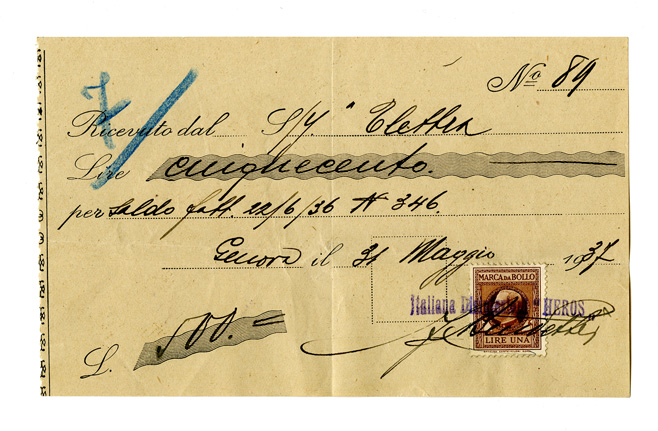 7/
Nº 89
Ricevuto dal S/Y. "Elettra
Lire cinquecento.
per saldo fatt. 22/6/36 N 346.
Genova il 31 Maggio 1937
MARCA DA BOLLO
Italiana HEROS
LIRE UNA
L. 500.=